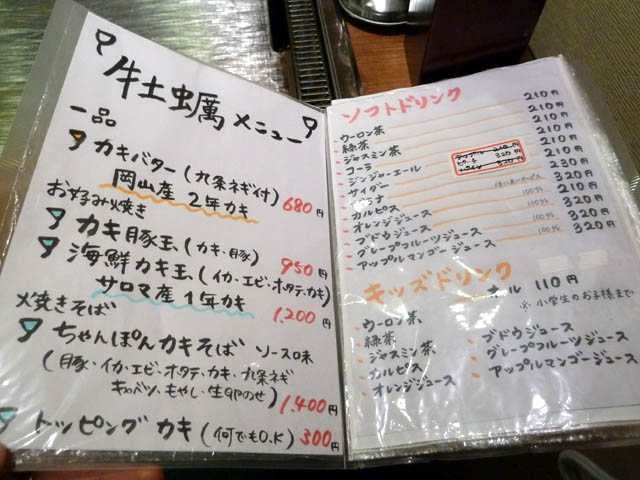 牡蠣メニュー
一品
カキバター(九条ネギ付)
岡山産 2年カキ 680円
お好み焼き
カキ豚玉(カキ・豚) 950円
海鮮カキ玉(イカ・エビ・ホタテ・カキ)
サロマ産 1年カキ 1,200円
焼きそば
ちゃんぽんカキそば ソース味
(豚・イカ・エビ・ホタテ・カキ・九条ネギ
キャベツ・もやし・生卵のせ) 1,400円
トッピング カキ(何でもO.K) 300円
ソフトドリンク
ウーロン茶 210円
緑茶 210円
ジャスミン茶 210円
コーラ 210円
ジンジャーエール 210円
サイダー 210円
230円
カルピス 320円
オレンジジュース 100% 320円
ブドウジュース 100% 320円
グレープフルーツジュース 100% 320円
アップルマンゴージュース 320円
キッズドリンク
オール 110円
※小学生のお子様まで
ウーロン茶
緑茶
ジャスミン茶
カルピス
オレンジジュース
ブドウジュース
グレープフルーツジュース
アップルマンゴージュース